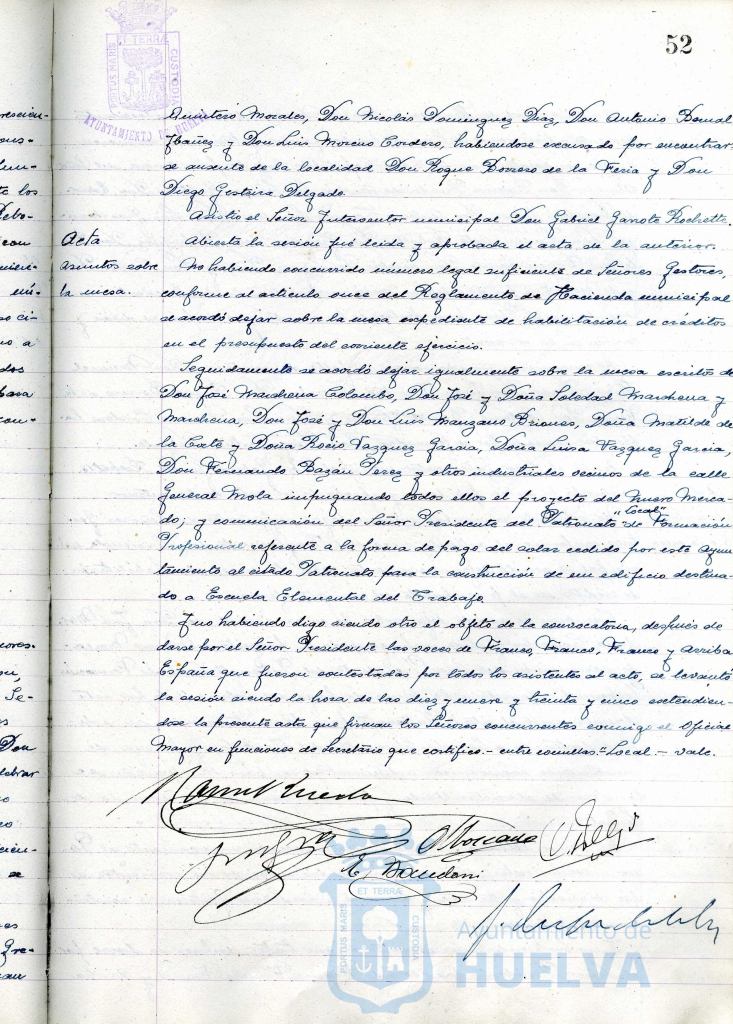 52
PORTUS MARIS ET TERRÆ CUSTODIA
AYUNTAMIENTO DE HUELVA
Quintero Morales, Don Nicolás Dominguez Diaz, Don Antonio Bernal
Ibañez y Don Luis Moreno Cordero, habiendose excusado por encontrar-
se ausente de la localidad Don Roque Borrero de la Feria y Don
Diego Gesteira Delgado.
Asistio el Señor Interventor municipal Don Gabriel Garrote Rochette.
Acta
Abierta la sesión fué leida y aprobada el acta de la anterior.
asuntos sobre
la mesa.
No habiendo concurrido número legal suficiente de Señores Gestores,
conforme al articulo once del Reglamento de Hacienda municipal
se acordó dejar sobre la mesa expediente de habilitación de créditos
en el presupuesto del corriente ejercicio.
Seguidamente se acordó dejar igualmente sobre la mesa escritos de
Don José Marchena Colombo, Don José y Doña Soledad Marchena y
Marchena, Don José y Don Luis Manzano Briones, Doña Matilde de
la Corte y Doña Rocio Vazquez Garcia, Doña Luisa Vazquez Garcia,
Don Fernando Bazán Perez y otros industriales vecinos de la calle
General Mola impugnando todos ellos el proyecto del Nuevo Merca-
"Local"
do; y comunicación del Señor Presidente del Patronato de Formación
Profesional referente a la forma de pago del solar cedido por este Ayun
tamiento al citado Patronato para la construcción de un edificio destina-
do a Escuela Elemental del Trabajo.
Y no habiendo digo siendo otro el objeto de la convocatoria, después de
darse por el Señor Presidente las voces de Franco, Franco, Franco y arriba
España que fueron contestadas por todos los asistentes al acto, se levantó
la sesión siendo la hora de las diez y nueve y treinta y cinco extendien-
dose la presente acta que firman los Señores concurrentes conmigo el Oficial
Mayor en funciones de Secretario que certifico.- entre comillas.- Local.- vale.
PORTUS MARIS ET TERRÆ CUSTODIA
Ayuntamiento de
HUELVA